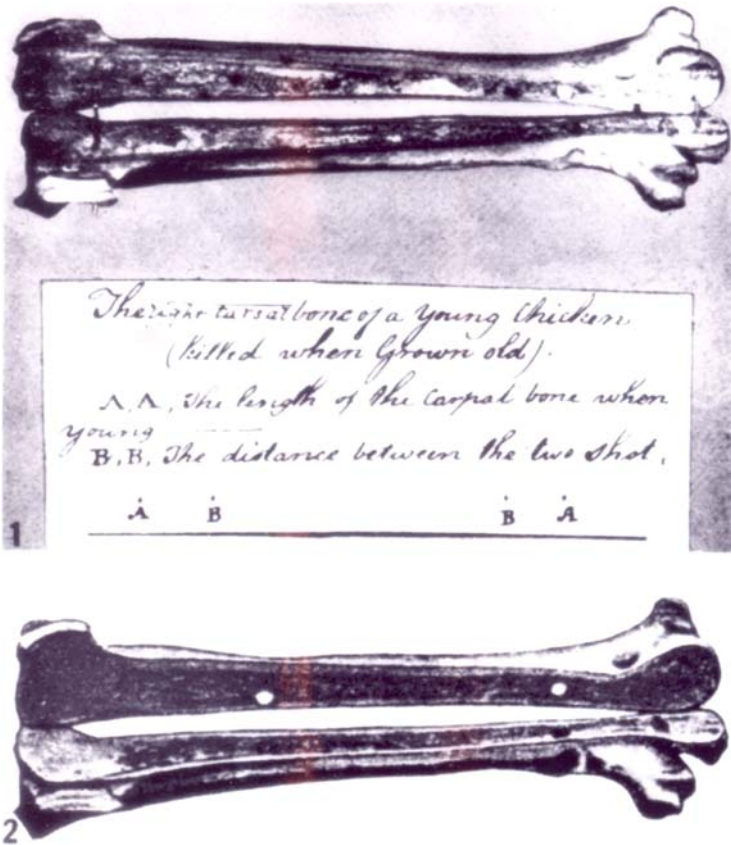 The right tarsal bone of a young Chicken
(killed when Grown old).
A.A, The length of the Carpal bone when
young
B.B, The distance between the two shot.
A B B A
1
2